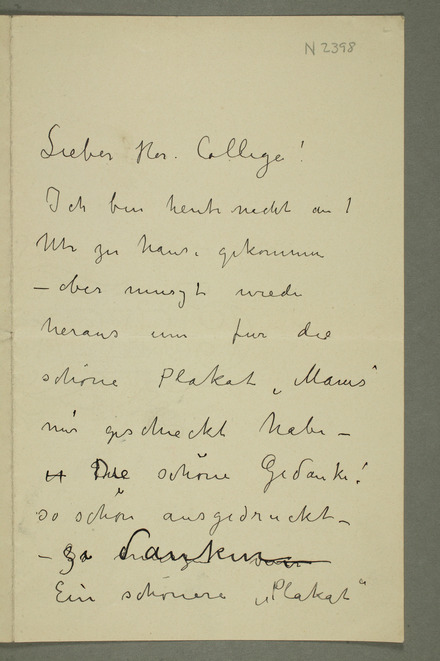 N 2398
Lieber Her. College!
Ich bin heute nacht um 1
Uhr zu Haus. gekommen
– aber muszt wiede
heraus um fur die
schöne Plakat „Mams"
mir geschieckt habe –
Die schöne Gedanke!
so schön ausgedruckt –
– zu danken
Ein schönere „Plakat"